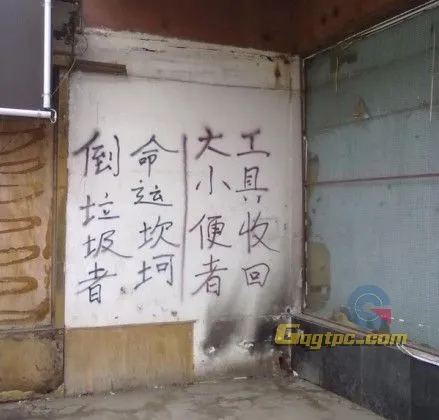 倒垃圾者
命运坎坷
大小便者
工具收回
Gqgtpc.com